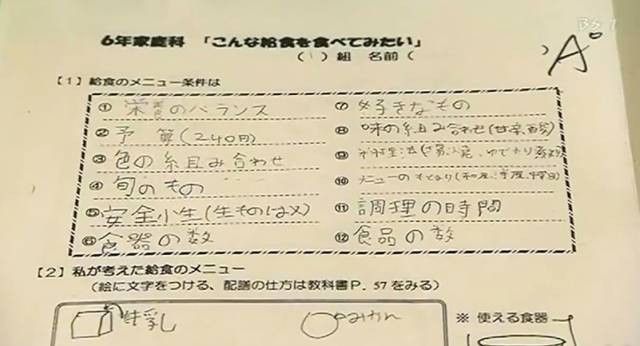 BS 1
6年家庭科 「こんな給食を食べてみたい」
( 1 ) 組 名前 (
) A°
【1】給食のメニュー条件は
① 栄養のバランス
② 予算(240円)
③ 色の組み合わせ
④ 旬のもの
⑤ 安全小生(生ものは×)
⑥ 食器の数
⑦ 好きなもの
⑧ 味の組み合わせ(甘辛酸)
⑨
⑩ メニューの
⑪ 調理の時間
⑫ 食品の数
【2】私が考えた給食のメニュー
(絵に文字をつける、配譜の仕方は教科書P. 57をみる)
牛乳
みかん
※ 使える食器